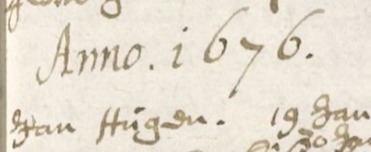 Anno. 1676.
Jan Hügen. 19 Jan